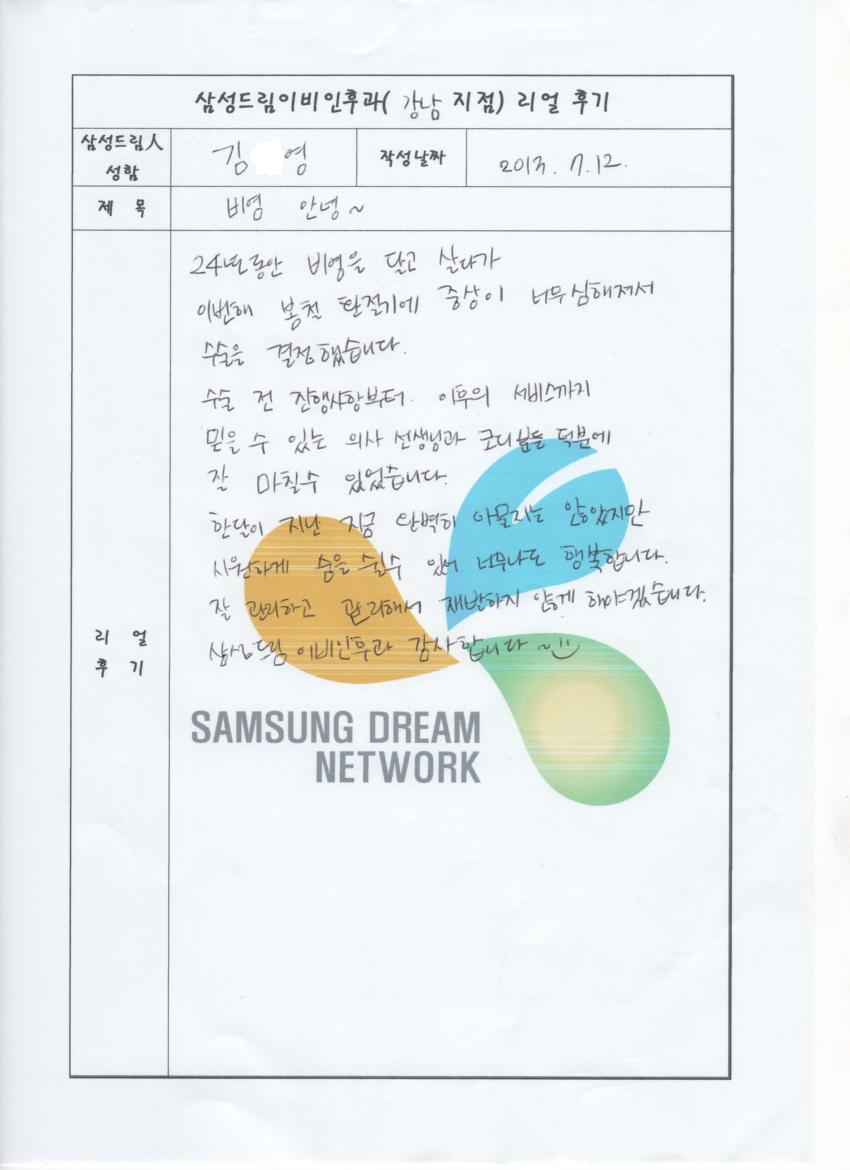 삼성드림이비인후과( 강남 지점) 리얼 후기
삼성드림人 성함
김 영
작성날짜
2013. 7. 12.
제 목
비염 안녕~
리 얼 후 기
24년동안 비염을 달고 살다가
이번해 봄철 환절기에 증상이 너무심해져서
수술을 결정했습니다.
수술 전 진행사항부터. 이후의 서비스까지
믿을 수 있는 의사 선생님과 코디분들 덕분에
잘 마칠수 있었습니다.
한달이 지난 지금 완벽히 아물지는 않았지만
시원하게 숨을 쉴수 있어 너무나도 행복합니다.
잘 관리하고 관리해서 재발하지 않게 해야겠습니다.
삼성드림 이비인후과 감사합니다 ~
SAMSUNG DREAM
NETWORK